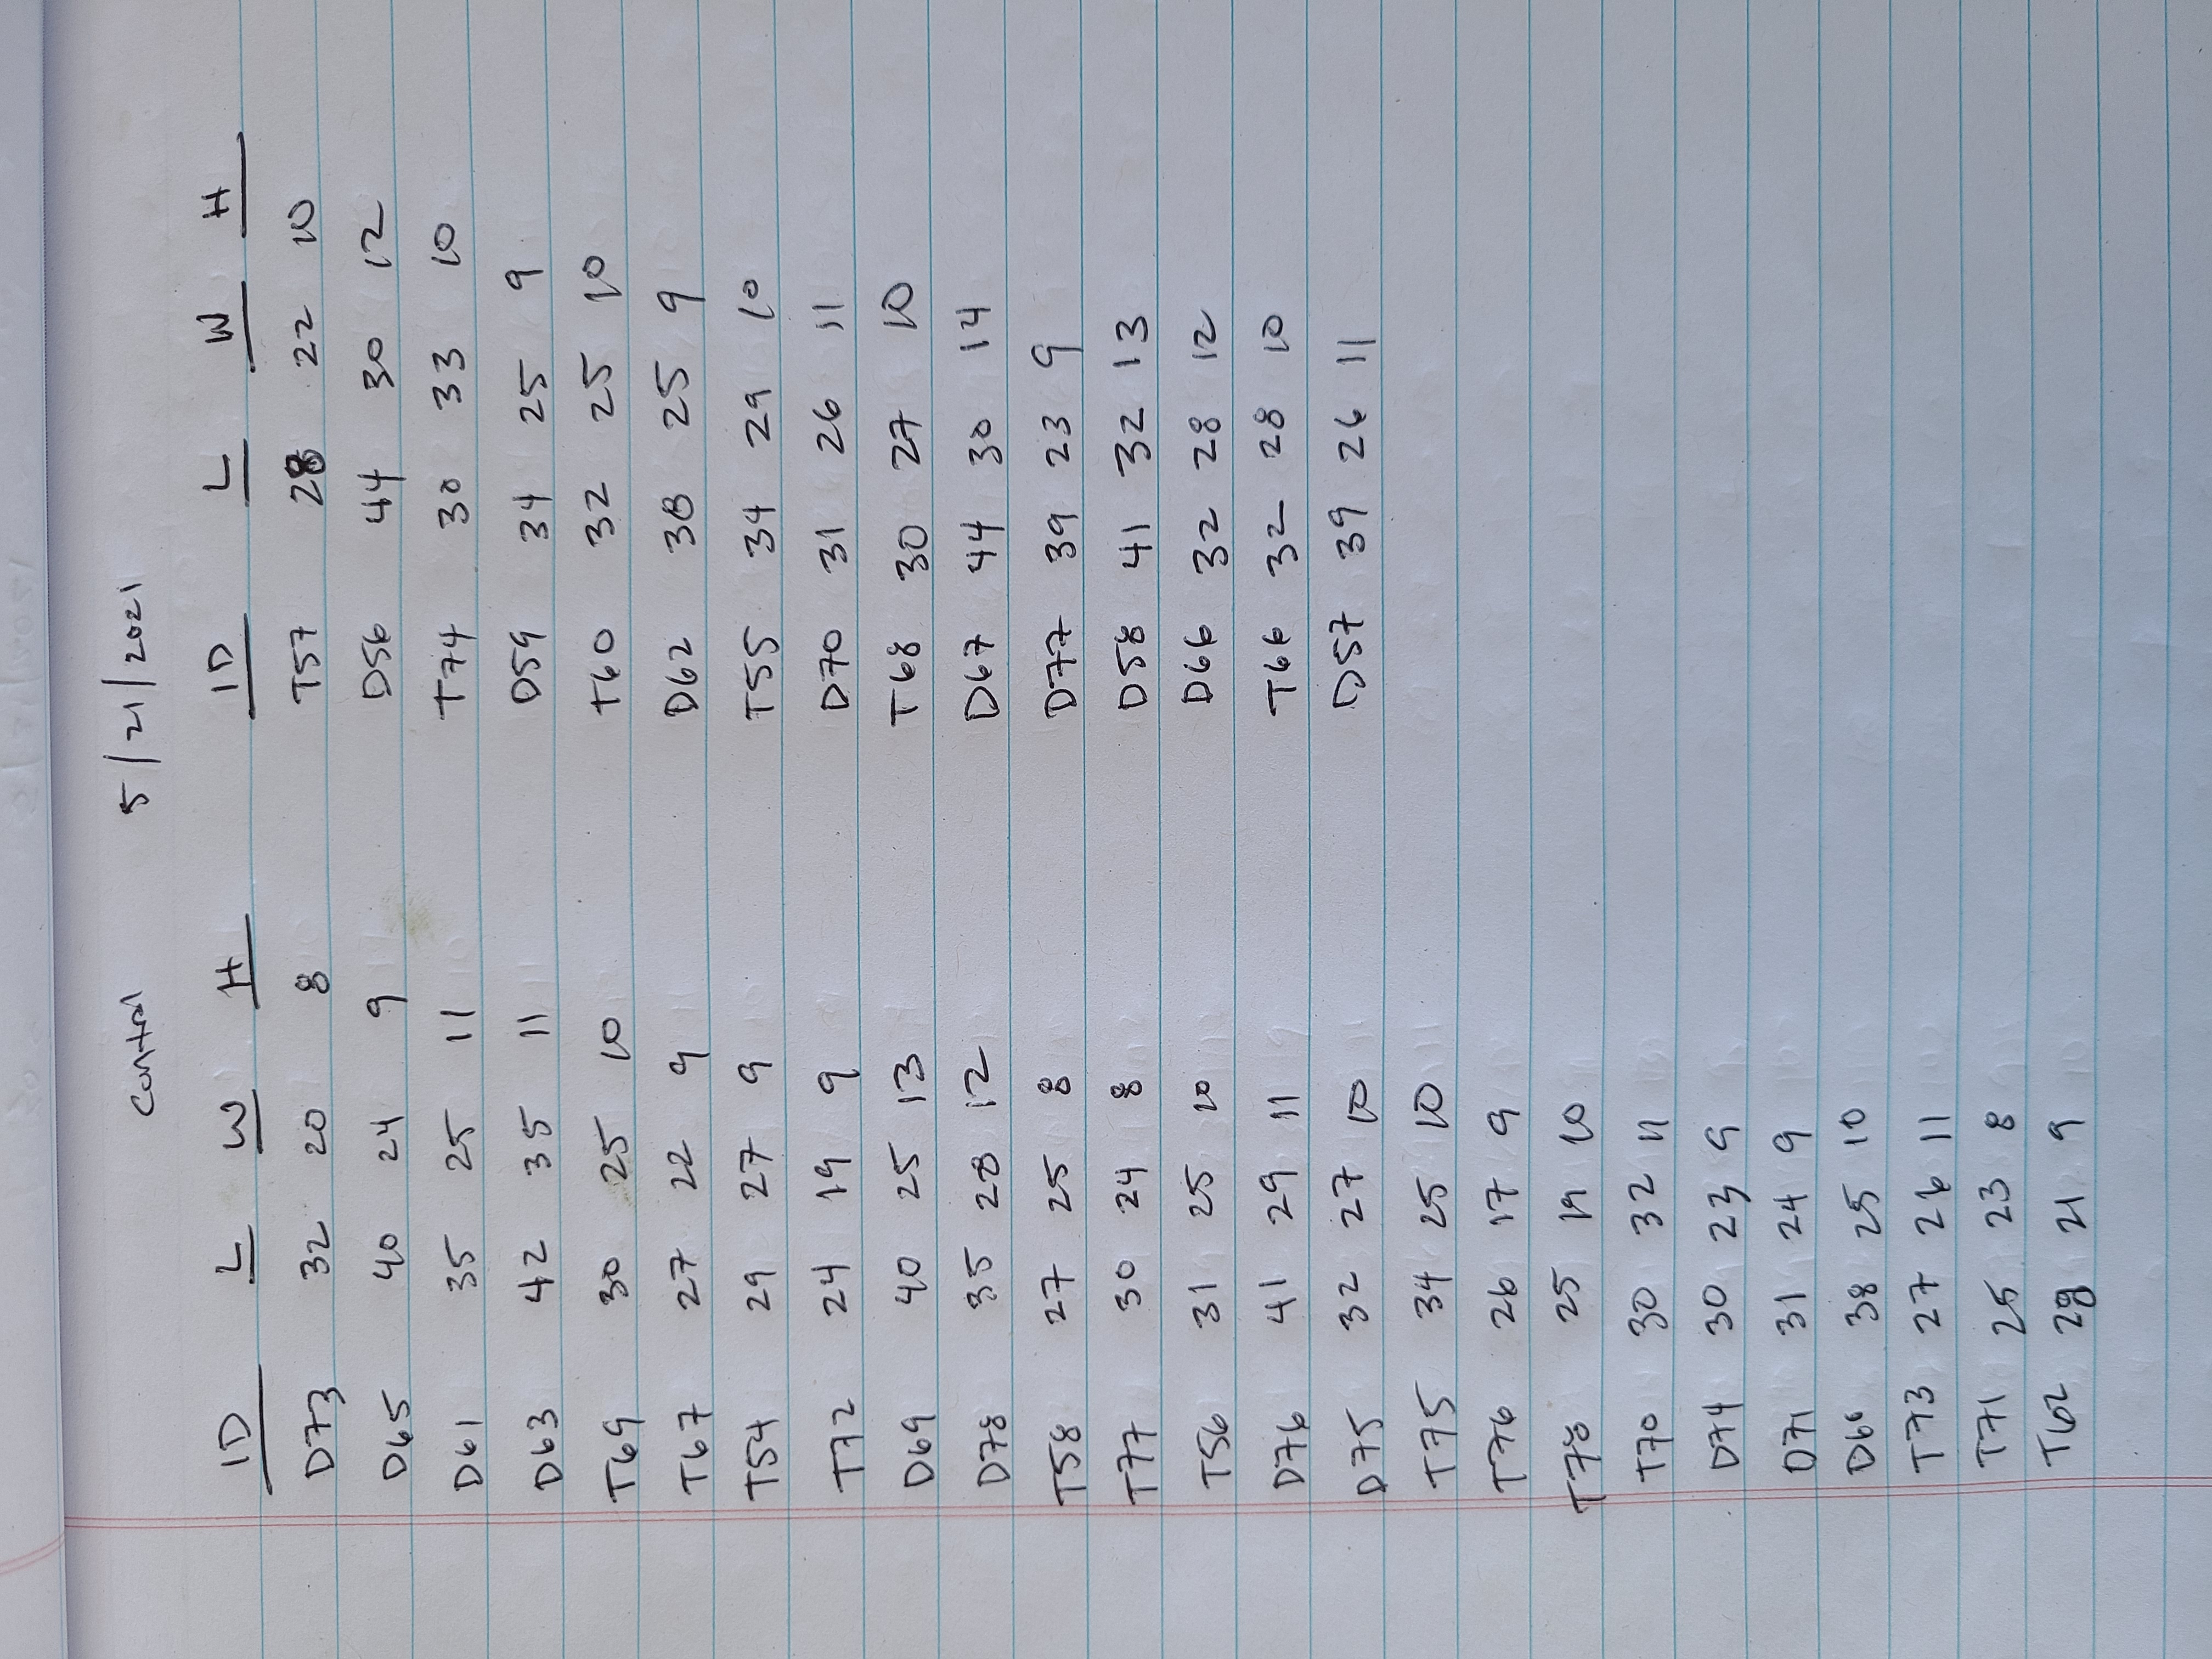 Control 5/21/2021
ID L W H
D73 32 20 8
D65 40 24 9
D61 35 25 11
D63 42 35 11
T69 30 25 10
T67 27 22 9
T54 29 27 9
T72 24 19 9
D69 40 25 13
D78 35 28 12
T58 27 25 8
T77 30 24 8
T56 31 25 10
D76 41 29 11
D75 32 27 10
T75 34 25 10
T76 26 17 9
T78 25 19 10
T70 30 32 11
D74 30 23 9
D71 31 24 9
38 25 10
T73 27 26 11
T71 25 23 8
T62 21 9
ID L W H
T57 28 22 10
D56 44 30 12
T74 30 33 10
D59 34 25 9
T60 32 25 10
D62 38 25 9
T55 34 29 10
D70 31 26 11
T68 30 27 10
D67 44 30 14
D77 39 23 9
D58 41 32 13
D66 32 28 12
T66 32 28 10
D57 39 26 11